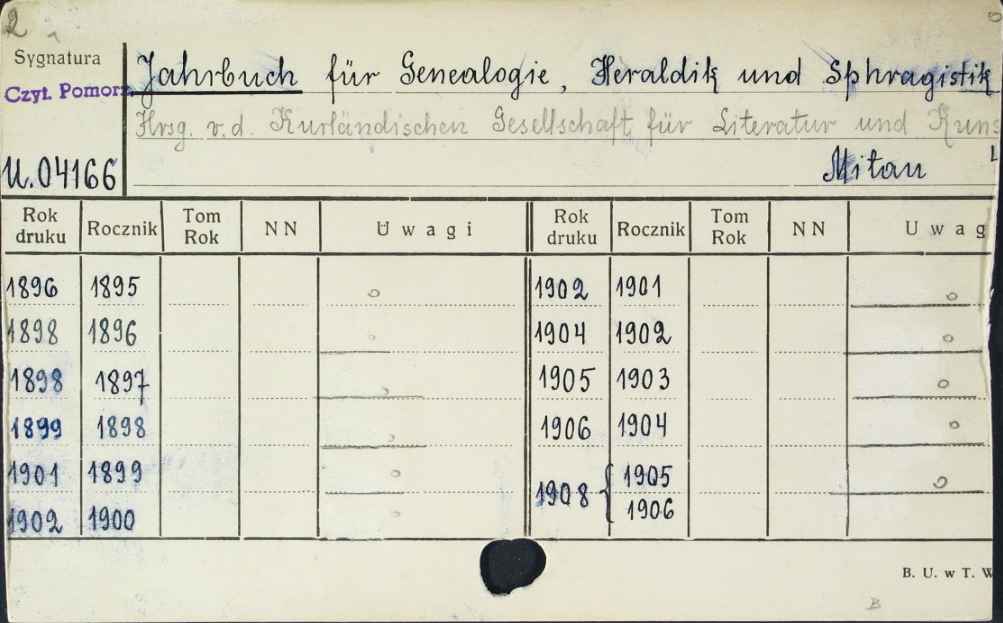 2
Sygnatura
Czyt. Pomorz.
U.04166
Jahrbuch für Genealogie, Heraldik und Sphragistik
Hrsg. v. d. Kurländischen Gesellschaft für Literatur und Kuns
Mitau
Rok druku Rocznik Tom Rok NN Uwagi Rok druku Rocznik Tom Rok NN Uwag
1896 1895 o 1902 1901 o
1898 1896 o 1904 1902 o
1898 1897 o 1905 1903 o
1899 1898 o 1906 1904 o
1901 1899 o 1908 { 1905 o
1902 1900 o 1906
B. U. w T. W
B